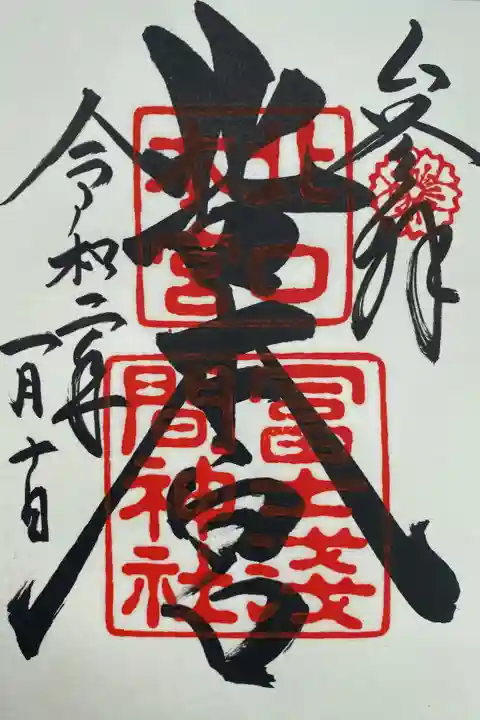 參拝
北口本宮
北口
本宮
冨士淺
間神社
令和二年
一月十日